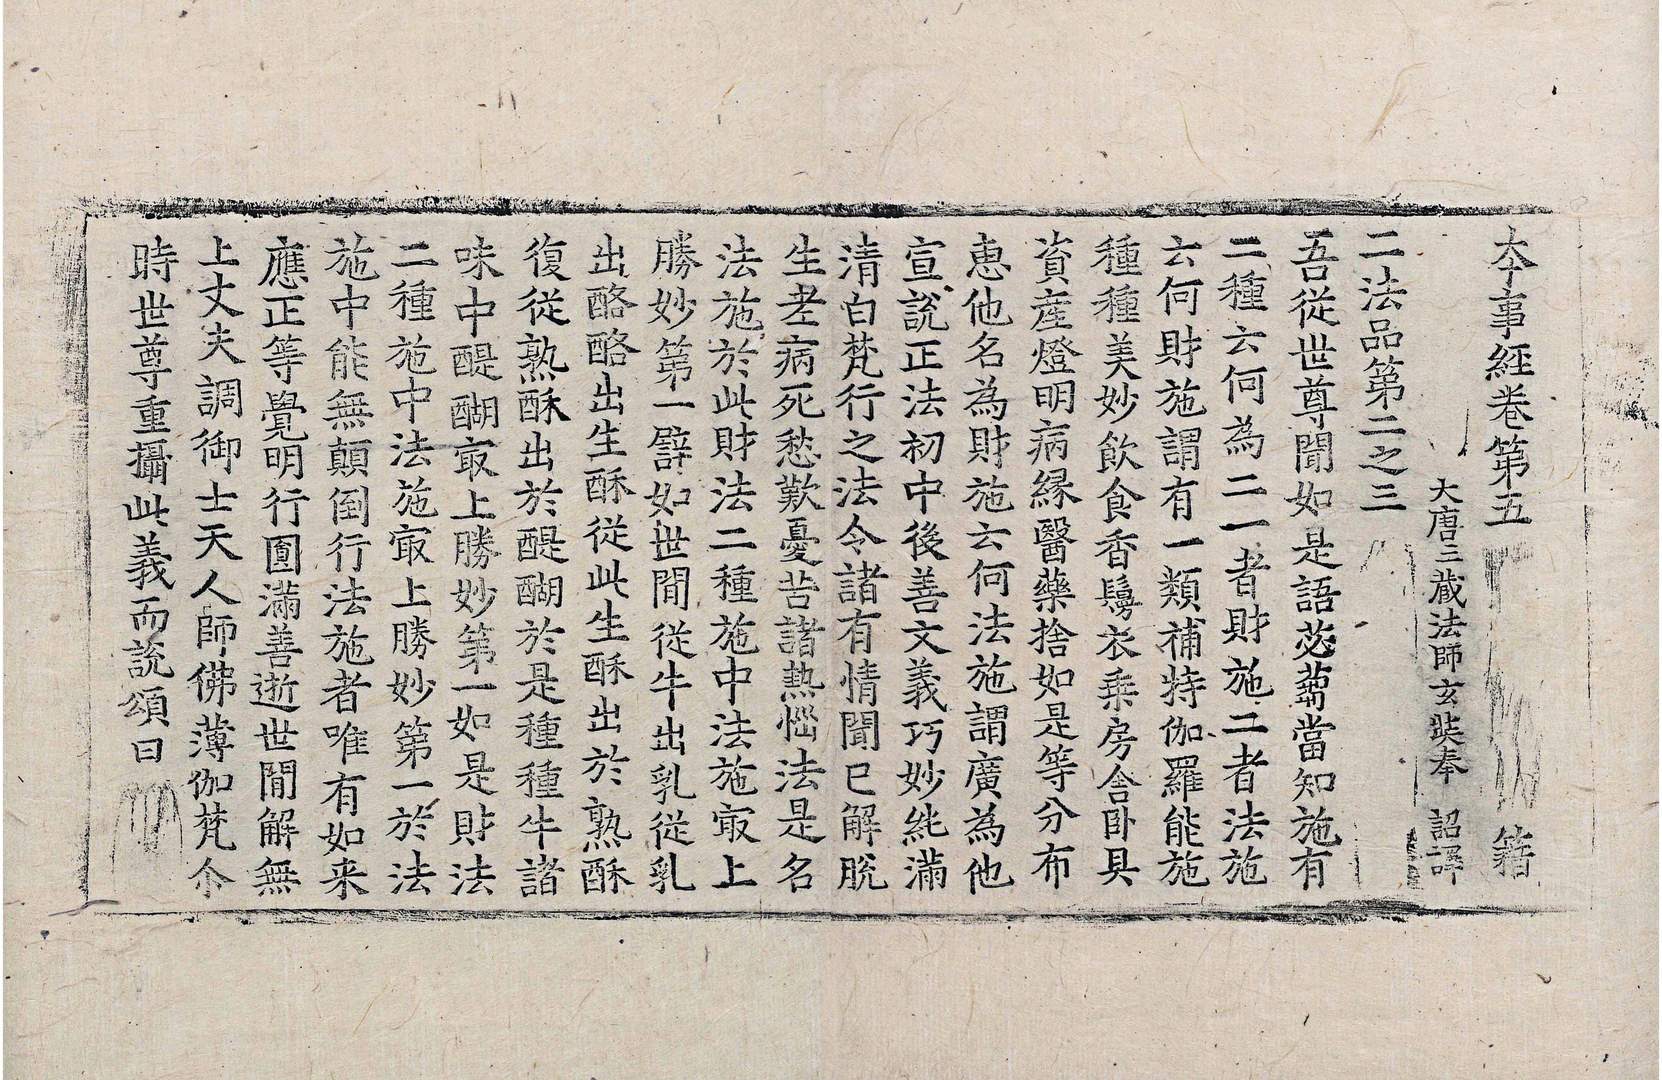 夲事經卷第五 籍
大唐三藏法師玄奘奉 詔譯
二法品第二之三
吾從世尊聞如是語苾蒭當知施有
二種云何為二一者財施二者法施
云何財施謂有一類補特伽羅能施
種種美妙飲食香鬘衣乗房舍卧具
資産燈明病縁醫藥捨如是等分布
恵他名為財施云何法施謂廣為他
宣說正法初中後善文義巧妙純滿
清白梵行之法令諸有情聞已解脫
生老病死愁歎憂苦諸熱惱法是名
法施於此財法二種施中法施㝡上
勝妙第一譬如世閒從牛出乳從乳
出酪酪出生酥從此生酥出於熟酥
復從熟酥出於醍醐於是種種牛諸
味中醍醐㝡上勝妙第一如是財法
二種施中法施㝡上勝妙第一於法
施中能無顛倒行法施者唯有如来
應正等覺明行圎滿善逝世閒解無
上丈夫調御士天人師佛薄伽梵尒
時世尊重攝此義而說頌曰